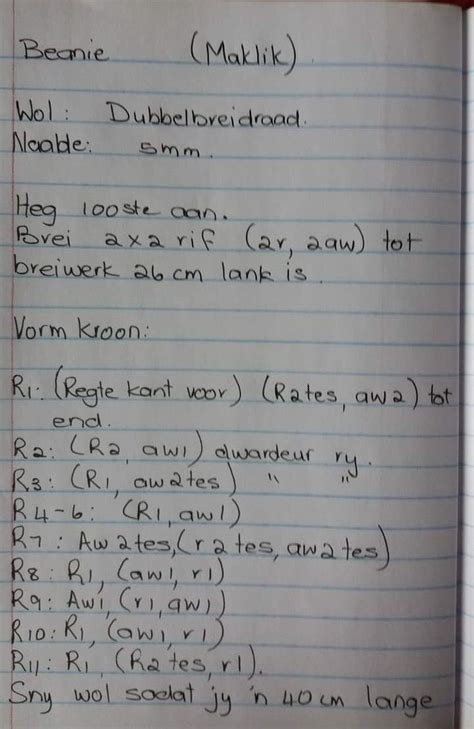 Beanie (Maklik)
Wol: Dubbelbreidraad.
Naalde: 5mm.
Heg 100 ste aan.
Brei 2x2 rif (2r, 2aw) tot
breiwerk 26 cm lank is.
Vorm kroon:
R1: (Regte kant voor) (R2tes, aw2) tot
end.
R2: (R2, aw1) dwardeur ry.
R3: (R1, aw2tes) " "
R4-6: (R1, aw1)
R7: Aw2tes, (r2tes, aw2tes)
R8: R1, (aw1, r1)
R9: Aw1, (r1, aw1)
R10: R1, (aw1, r1)
R11: R1, (R2tes, r1).
Sny wol sodat jy 'n 40 cm lange